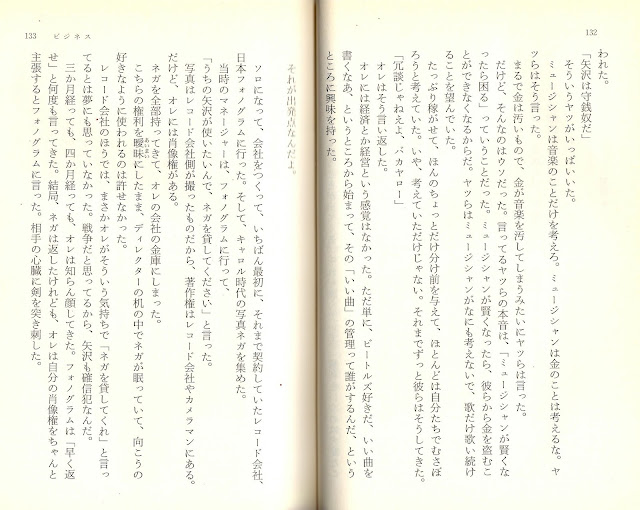 132
われた。
「矢沢は守銭奴だ」
そういうヤツがいっぱいいた。
ミュージシャンは音楽のことだけを考えろ。ミュージシャンは金のことは考えるな。ヤ
ツらはそう言った。
まるで金は汚いもので、金が音楽を汚してしまうみたいにヤツらは言った。
だけど、そんなのはウソだった。言ってるヤツらの本音は、「ミュージシャンが賢くな
ったら困る」っていうことだった。ミュージシャンが賢くなったら、彼らから金を盗むこ
とができなくなるからだ。ヤツらはミュージシャンがなにも考えないで、歌だけ歌い続け
ることを望んでいた。
たっぷり稼がせて、ほんのちょっとだけ分け前を与えて、ほとんどは自分たちでむさぼ
ろうと考えていた。いや、考えていただけじゃない。それまでずっと彼らはそうしてきた。
「冗談じゃねえよ、バカヤロー」
オレはそう言い返した。
オレには経済とか経営という感覚はなかった。ただ単に、ビートルズ好きだ、いい曲を
書くなあ、というところから始まって、その「いい曲」の管理って誰がするんだ、という
ところに興味を持った。
133 ビジネス
それが出発点なんだ。
ソロになって、会社をつくって、いちばん最初に、それまで契約していたレコード会社、
日本フォノグラムに行った。そして、キャロル時代の写真ネガを集めた。
当時のマネージャーは、フォノグラムに行って、
「うちの矢沢が使いたいんで、ネガを貸してください」と言った。
写真はレコード会社側が撮ったものだから、著作権はレコード会社やカメラマンにある。
だけど、オレには肖像権がある。
ネガを全部持ってきて、オレの会社の金庫にしまった。
こちらの権利を曖昧にしたまま、ディレクターの机の中でネガが眠っていて、向こうの
好きなように使われるのは許せなかった。
レコード会社のほうでは、まさかオレがそういう気持ちで「ネガを貸してくれ」と言っ
てるとは夢にも思っていなかった。戦争だと思ってるから、矢沢も確信犯なんだ。
三か月経っても、四か月経っても、オレは知らん顔してきた。フォノグラムは「早く返
せ」と何度も言ってきた。結局、ネガは返したけれども、オレは自分の肖像権をちゃんと
主張するとフォノグラムに言った。相手の心臓に剣を突き刺した。